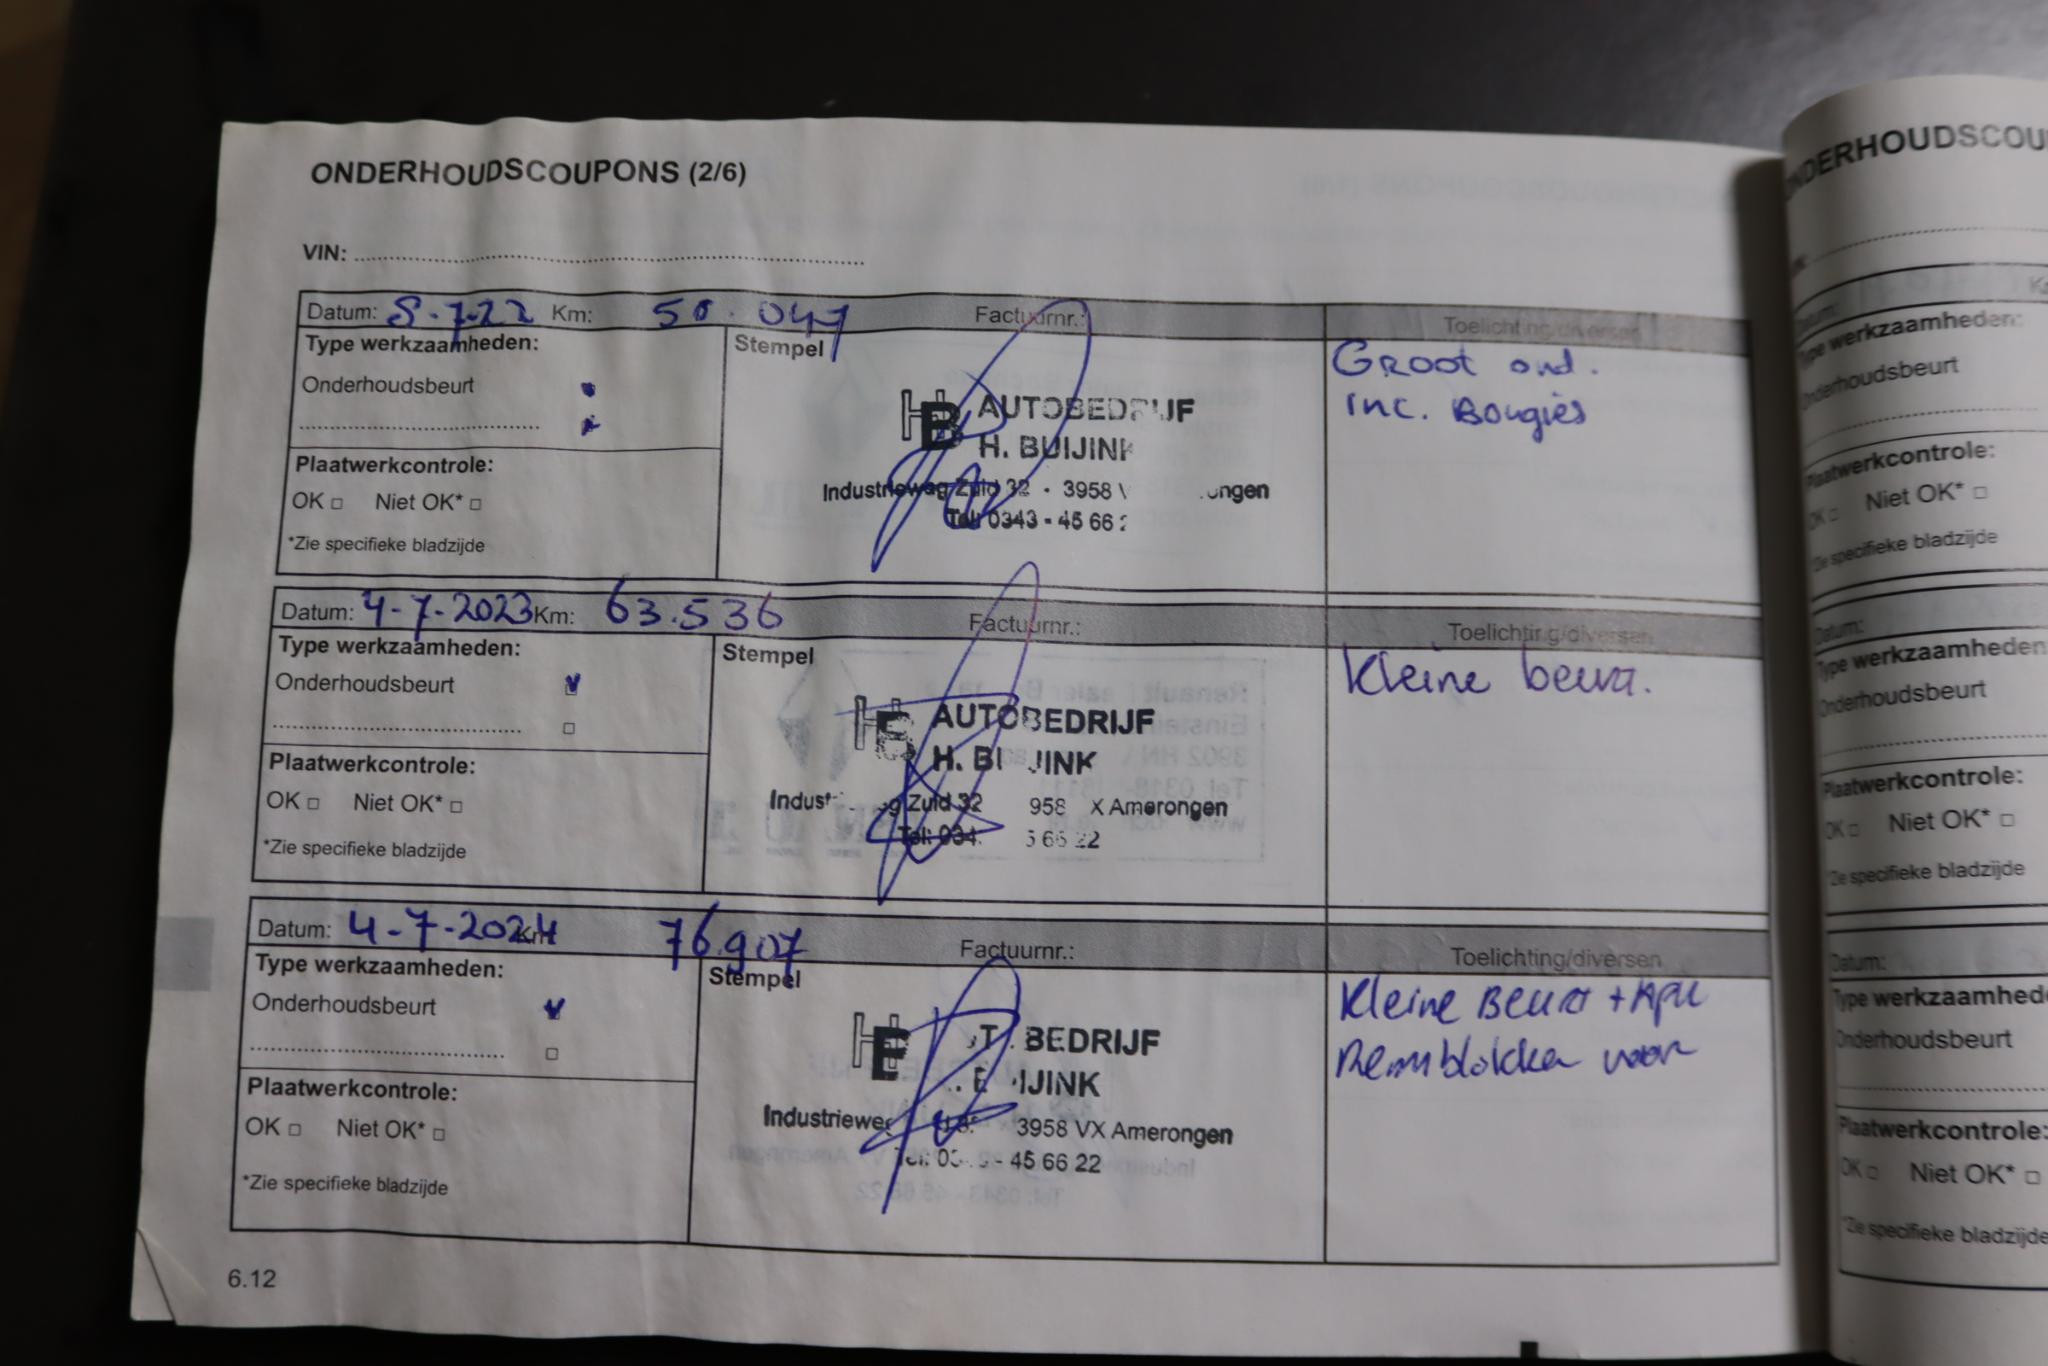 ONDERHOUDSCOUPONS (2/6)
VIN:
Datum: 8-7-22 Km: 50.047 Factuurnr.: Toelichting/diversen
Type werkzaamheden: Stempel
Onderhoudsbeurt
Groot ond.
inc. Bougies
AUTOBEDRIJF
H. BUIJINK
Industrieweg Zuid 32 - 3958 V ongen
Tel: 0343 - 45 66 2
Plaatwerkcontrole:
OK Niet OK*
*Zie specifieke bladzijde
Datum: 4-7-2023 Km: 63.536 Factuurnr.: Toelichting/diversen
Type werkzaamheden: Stempel
Onderhoudsbeurt
Kleine beurt.
AUTOBEDRIJF
H. B JINK
Indust g Zuid 32 958 X Amerongen
Tel: 034 5 66 22
Plaatwerkcontrole:
OK Niet OK*
*Zie specifieke bladzijde
Datum: 4-7-2024 Km 76.907 Factuurnr.: Toelichting/diversen
Type werkzaamheden: Stempel
Onderhoudsbeurt
Kleine Beurt + APK
Remblokken voor
T BEDRIJF
IJINK
Industrieweg 3958 VX Amerongen
Tel: 03 - 45 66 22
Plaatwerkcontrole:
OK Niet OK*
*Zie specifieke bladzijde
6.12
ONDERHOUDSCOU
Datum:
Type werkzaamheden:
Onderhoudsbeurt
Plaatwerkcontrole:
OK Niet OK*
*Zie specifieke bladzijde
Datum:
Type werkzaamheden
Onderhoudsbeurt
Plaatwerkcontrole:
OK Niet OK*
*Zie specifieke bladzijde
Datum:
Type werkzaamhed
Onderhoudsbeurt
Plaatwerkcontrole:
OK Niet OK*
*Zie specifieke bladzijde